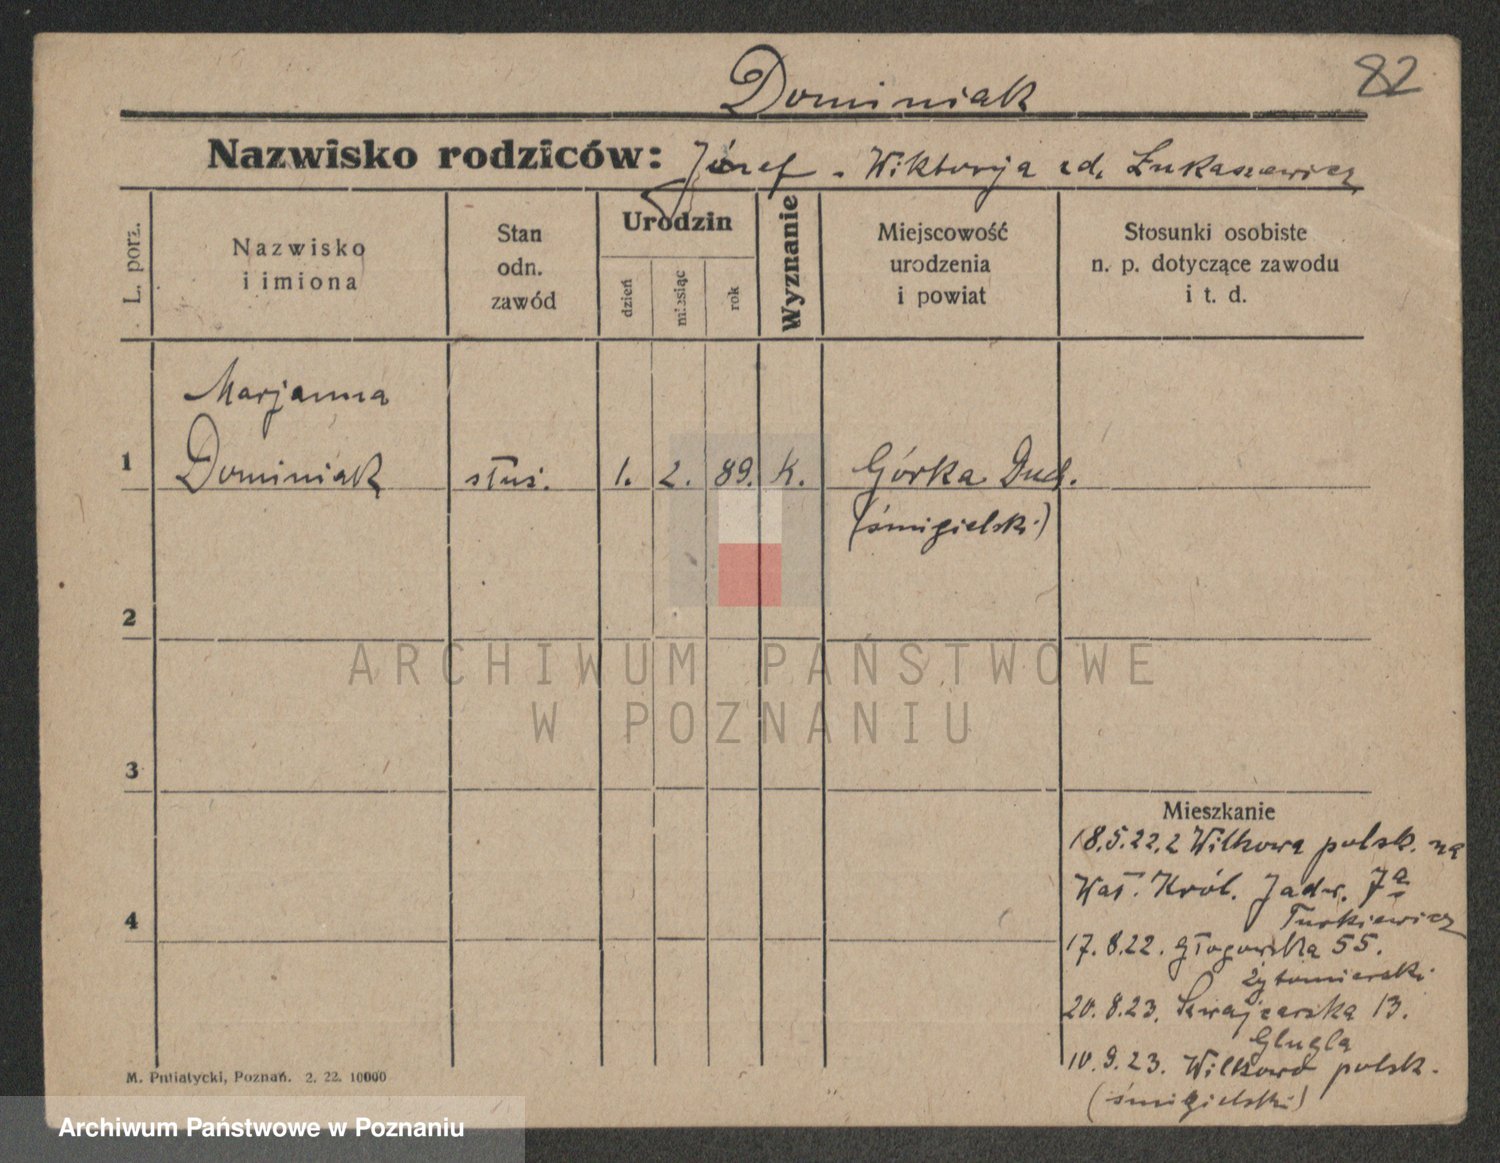 82
Dominiak
Nazwisko rodziców: Józef - Wiktorja zd. Łukaszewicz
L. porz.
Nazwisko
i imiona
Stan
odn.
zawód
Urodzin
dzień
miesiąc
rok
Wyznanie
Miejscowość
urodzenia
i powiat
Stosunki osobiste
n. p. dotyczące zawodu
i t. d.
Marjanna
1 Dominiak służ. 1. 2. 89. k. Górka Duch.
(śmigielski)
2
ARCHIWUM PAŃSTWOWE
W POZNANIU
3
Mieszkanie
18.5.22. z Wilkowa polsk. na
Wał. Król. Jadw. 7a
4
Turkiewicz
17. 8.22. Głogowska 55.
Żytomierski
20. 8.23. Szwajcarska 13.
Glugla
10. 9. 23. Wilkowo polsk.
(śmigielski)
M. Putiatycki, Poznań. 2. 22. 10000
Archiwum Państwowe w Poznaniu